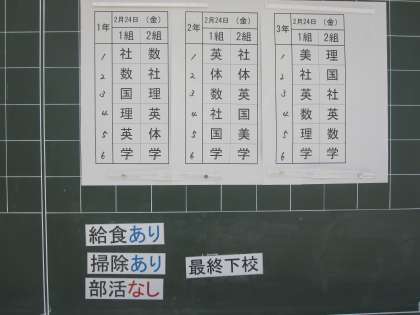 1年 2月24日 (金)
1組 2組
1 社 数
2 数 社
3 国 理
4 理 英
5 英 体
6 学 学
2年 2月24日 (金)
1組 2組
1 英 社
2 体 体
3 数 英
4 社 国
5 国 美
6 学 学
3年 2月24日 (金)
1組 2組
1 美 理
2 社 国
3 英 社
4 数 英
5 理 数
6 学 学
給食あり
掃除あり
最終下校
部活なし